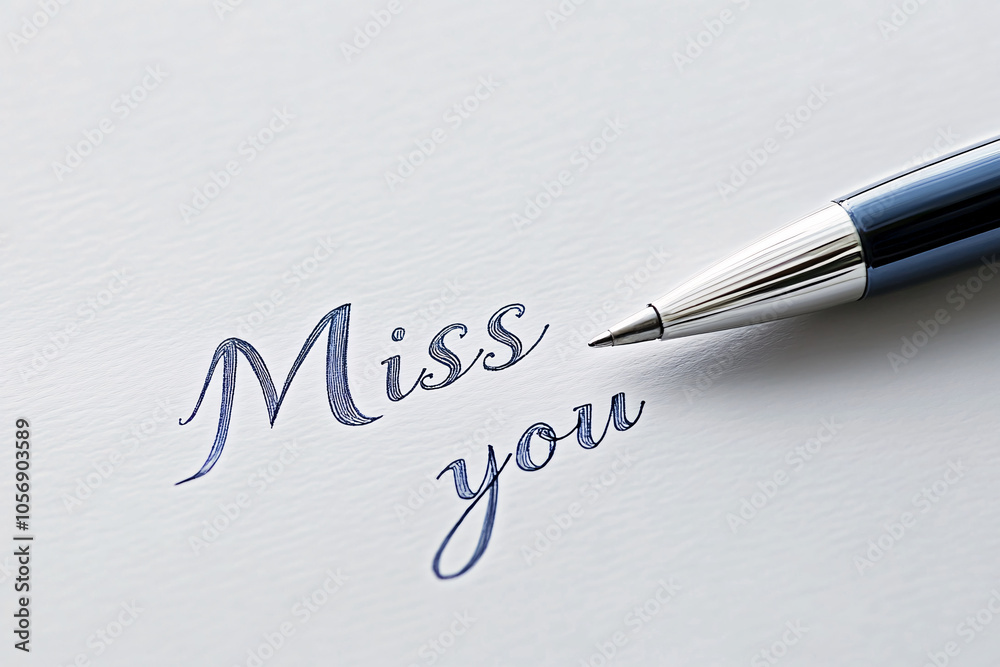 Miss
you
Adobe Stock | #1056903589